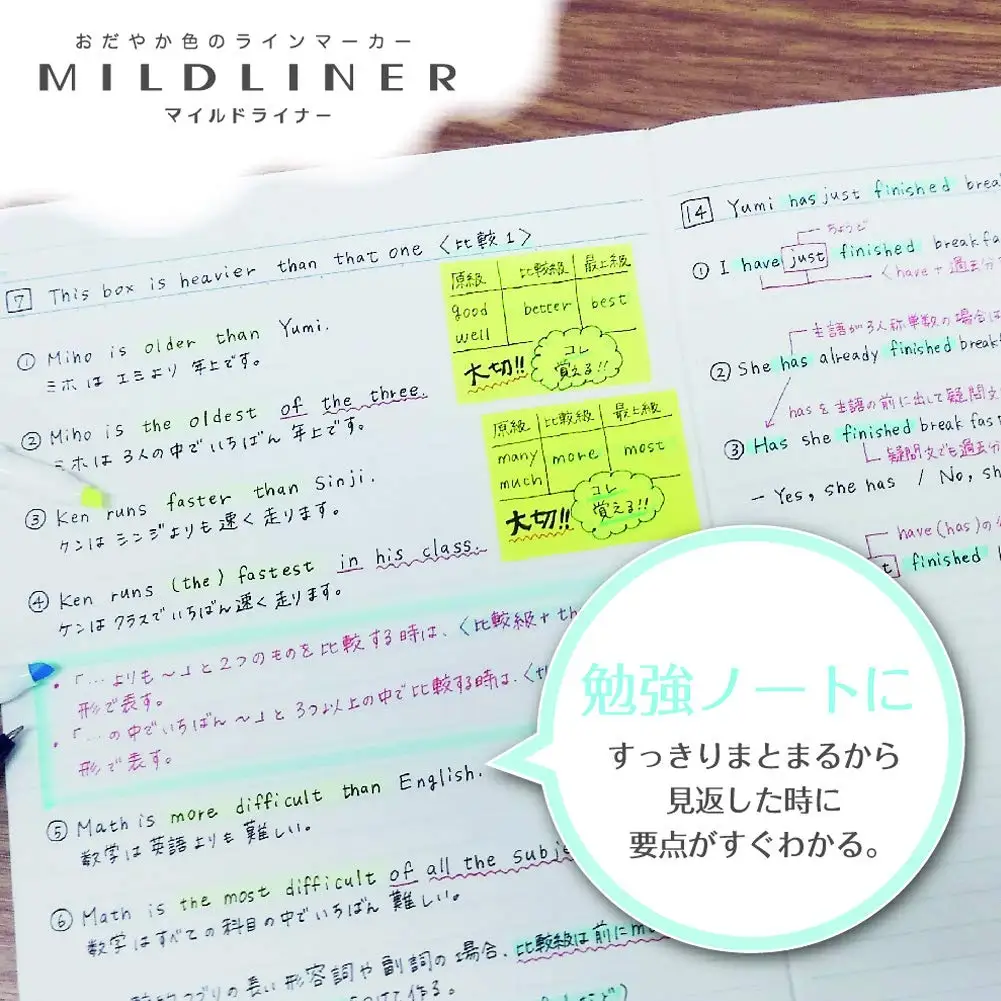 おだやか色のラインマーカー
MILDLINER
マイルドライナー
7 This box is heavier than that one 〈比較1〉
① Miho is older than Yumi.
ミホは エミより 年上です。
② Miho is the oldest of the three.
ミホは 3人の中でいちばん 年上です。
③ Ken runs faster than Sinji.
ケンは シンジよりも 速く 走ります。
④ Ken runs (the) fastest in his class.
ケンは クラスでいちばん 速く 走ります。
・「…よりも〜」と2つのものを比較する時は、〈比較級+th
形で表す。
・「…の中でいちばん〜」と3つ以上の中で比較する時は、〈t
形で表す。
⑤ Math is more difficult than English.
数学は英語よりも 難しい。
⑥ Math is the most difficult of all the subje
数学はすべての科目の中でいちばん 難しい。
つづりの長い形容詞や副詞の場合、比較級は前にm
つけて作る。
原級 比較級 最上級
good better best
well
大切!! コレ
覚える!!
原級 比較級 最上級
many more most
much
大切!! コレ
覚える!!
14 Yumi has just finished brea
ちょうど
① I have just finished breakfa
〈have+過去分
主語が3人称単数の場合は
② She has already finished break
hasを主語の前に出して疑問文
③ Has she finished breakfas
疑問文でも過去分
— Yes, she has / No, sh
have(has)の
t finished
勉強ノートに
すっきりまとまるから
見返した時に
要点がすぐわかる。